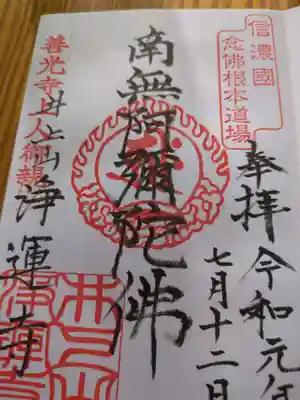 信濃國
念佛根本道場
奉拝
令和元年
七月十二日
南無阿彌陀佛
善光寺上人御親
井上山
浄運寺